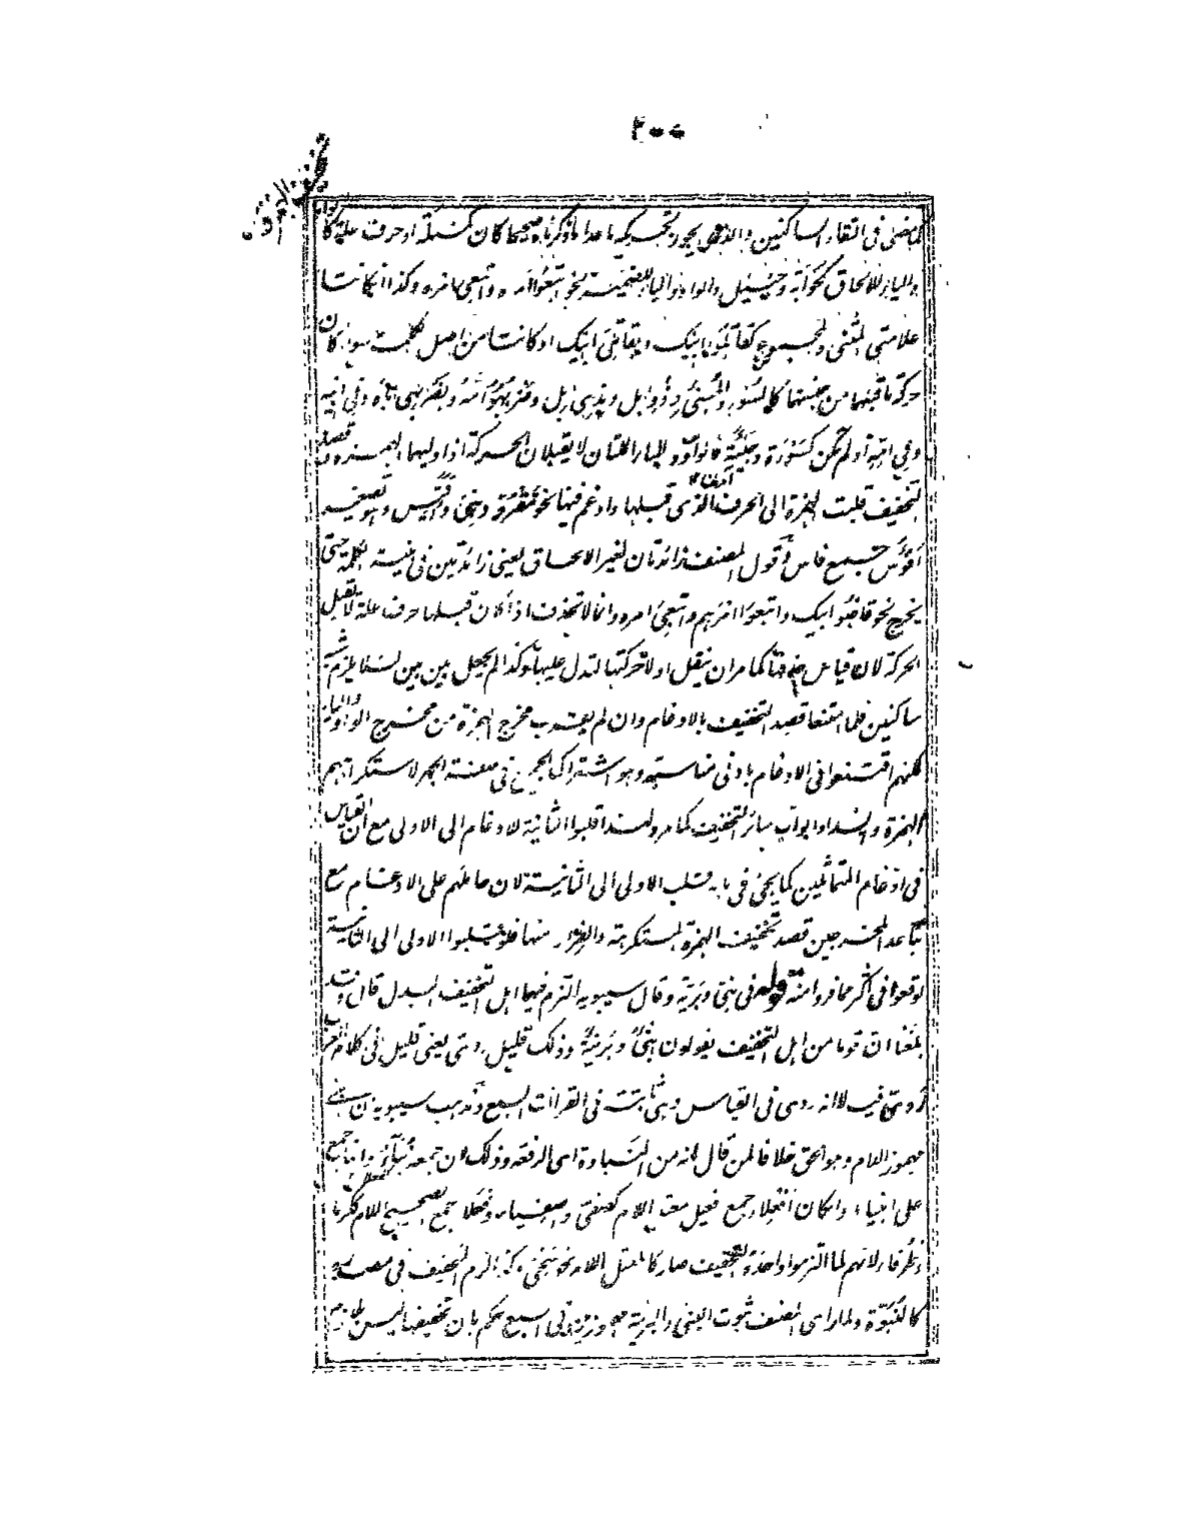 ٢٠٠
كما مضى فى التقاء الساكنين والذى يجوز تحريكه ما عدا ما ذكرناه صحيحا كان كمسئلة او حرف علة كالواو
والياء للالحاق كحوأبة وجيئيل والواو والياء للضمير نحو اتبعوا امره واتبعى امره وكذا ان كانتا
علامتى المثنى والمجموع كقاتلوا ابيك وبقاتلى ابيك او كانتا من اصل الكلمة سواء كان
حركة ما قبلهما من جنسهما كالسوء والمسىء وذو ابل وبذى ابل وفى ابيه
وفى امه او لم تكن كسوءة وجيئة فالواو والياء اللتان لا يقبلان الحركة اذا وليهما الهمزة وقصد
التخفيف قلبت الهمزة الى الحرف الذى قبلها وادغم فيها نحو مقروّ ونبى وافيس وهو تصغير
افؤس جمع فاس وقول المصنف زائدتان لغير الالحاق يعنى زائدتين فى بنية الكلمة حتى
يخرج نحو قاضوا ابيك واتبعوا امرهم واتبعى امره وانما لا تحذف اذا كان قبلها حرف علة لا تقبل
الحركة لان قياس حذفها كما مر ان ينقل اولا حركتها لتدل عليها وكذا لم يجعل بين بين لئلا يلزم شبه
ساكنين فلما امتنعا قصد التخفيف بالادغام وان لم يقرب مخرج الهمزة من مخرج الواو والياء
لكنهم اقتنعوا فى الادغام بادنى مناسبة وهو اشتراك الجميع فى صفة الجهر لاستكراههم
الهمزة وانسداد ابواب سائر التخفيف كما مر ولهذا قلبوا الثانية للادغام الى الاولى مع ان القياس
فى ادغام المتماثلين كما يجئ فى بابه قلب الاولى الى الثانية لان حاملهم على الادغام مع
تباعد المخرجين قصد تخفيف الهمزة المستكرهة والفرار منها فلو قلبوا الاولى الى الثانية
لوقعوا فى اكثر مما فروا منه قوله فى نبى وبرية وقال سيبويه التزم فيهما اهل التخفيف البدل قال وقد
بلغنا ان قوما من اهل التخفيف يقولون نبىء وبريئة وذلك قليل ردى يعنى قليل فى كلام العرب
ردى فيه لا انه ردى فى القياس وهى ثابتة فى القراءات السبع ومذهب سيبويه ان النبى
مهموز اللام وهو الحق خلافا لمن قال انه من النباوة اى الرفعة وذلك لان جمعه نبآء وانما جمع
على انبياء وان كان افعلاء جمع فعيل معتل اللام كصفى واصفياء وفعلاء جمع الصحيح اللام ككرماء
وظرفاء لانهم لما التزموا واحده التخفيف صار كالمعتل اللام نحو سخى وكذا الزم التخفيف فى مصدره
كالنبوة ولما رأى المصنف ثبوت النبىء والبريئة مهموزين فى السبع حكم بان تخفيفها ليس بلازم